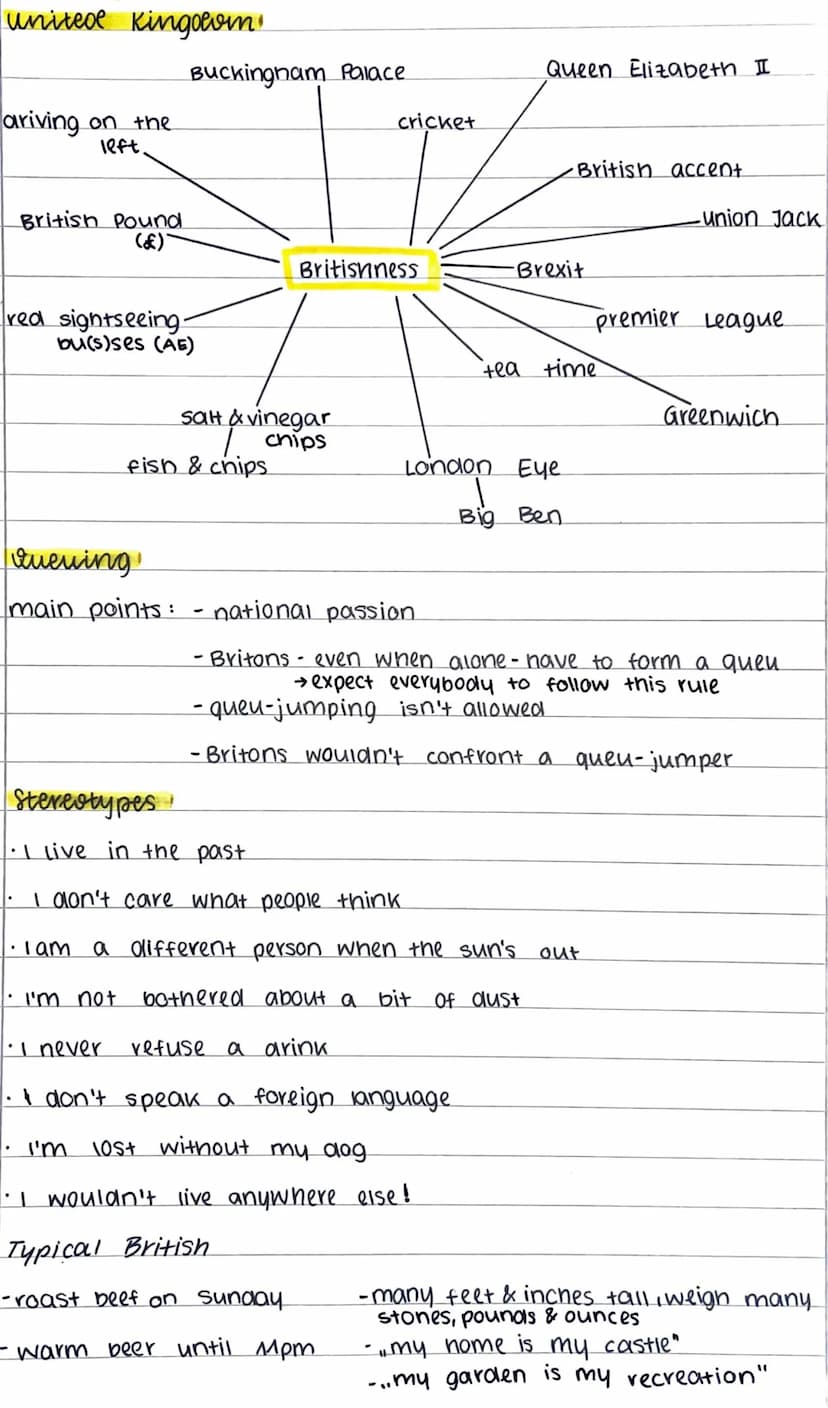 United Kingdom
Buckingham Palace
Queen Elizabeth II
driving on the
left
cricket
British accent
British Pound
(£)
Union Jack
Britishness
Brexit
red sightseeing
bu(s)ses (AE)
premier League
tea time
salt & vinegar
chips
Greenwich
fish & chips
London Eye
Big Ben
Queuing
main points: - national passion
- Britons - even when alone - have to form a queu
→ expect everybody to follow this rule
- queu-jumping isn't allowed
- Britons wouldn't confront a queu-jumper
Stereotypes
· I live in the past
· I don't care what people think
· I am a different person when the sun's out
· I'm not bothered about a bit of dust
· I never refuse a drink
· I don't speak a foreign language
· I'm lost without my dog
· I wouldn't live anywhere else!
Typical British
- roast beef on Sunday
- warm beer until 11pm
- many feet & inches tall, weigh many
stones, pounds & ounces
- „my home is my castle"
- „my garden is my recreation"